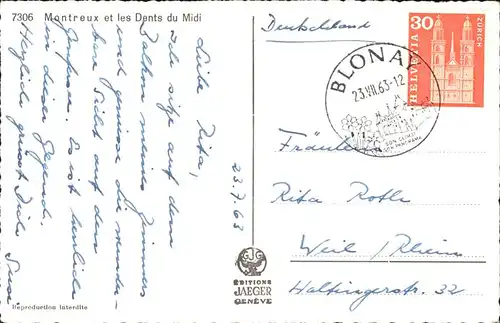 7306 Montreux et les Dents du Midi
Liebe Rita,
ich sitze auf dem
Balkon meines Zimmers
und geniesse die wunder-
bare Sicht auf den
See. Es ist herrlich
in dieser Gegend.
Herzlich grüsst Dich
23.7.63
Reproduction interdite
ÉDITIONS
JAEGER
GENÈVE
Deutschland
BLONAY
23.VII.63-12
HELVETIA
30
ZÜRICH
Fräulein
Rita Roth
Weil/Rhein
Haltingerstr. 32